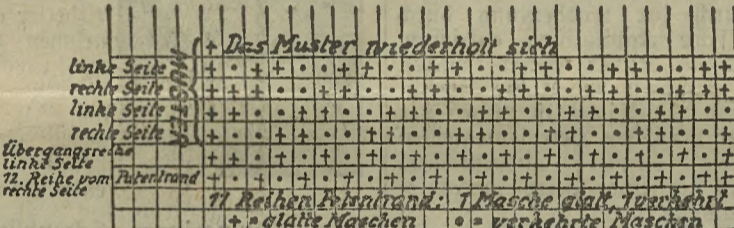 + Das Muster wiederholt sich
MUSTER
linke Seite + • + + • • + + • • + + • • + + • • + + • • + +
rechte Seite + + + • • + + • • + + • • + + • • + + • • + + +
linke Seite + + • • + + • • + + • • + + • • + + • • + + •
rechte Seite + • • + + • • + + • • + + • • + + • • + + • • +
Übergangsreihe
linke Seite + + • + • + • + • + • + • + • + • + • + • + • +
12. Reihe vom Patentrand
rechte Seite + • + • + • + • + • + • + • + • + • + • + • + • +
11 Reihen Patentrand: 1 Masche glatt, 1 verkehrt
+ = glatte Maschen • = verkehrte Maschen